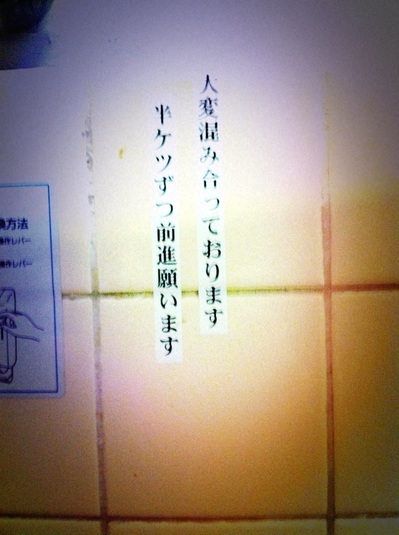 大変混み合っております
半ケツずつ前進願います
換方法
操作レバー
操作レバー